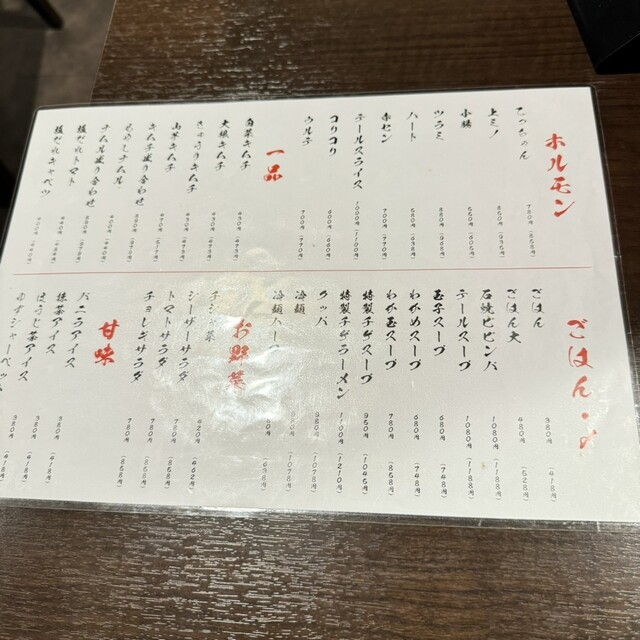 ホルモン
てっちゃん 780円 (858円)
上ミノ 850円 (935円)
小腸
ツラミ
ハート
赤セン 700円 (770円)
テールスライス 1000円 (1100円)
コリコリ 600円 (660円)
ウルテ 700円 (770円)
一品
白菜キムチ
大根キムチ
きゅうりキムチ
山芋キムチ
キムチ盛り合わせ
もやしナムル
ナムル盛り合わせ
塩だれトマト
塩だれキャベツ
ごはん・
ごはん 380円 (418円)
ごはん大 480円 (528円)
石焼ビビンバ 1080円 (1188円)
テールスープ 1080円 (1188円)
玉子スープ 680円 (748円)
わかめスープ 680円 (748円)
わか玉スープ 780円 (858円)
特製チゲスープ 950円 (1045円)
特製チゲラーメン 1100円 (1210円)
クッパ 980円 (1078円)
冷麺 (1078円)
冷麺ハーフ
お野菜
チシャ菜 420円 (462円)
シーザーサラダ
トマトサラダ 780円 (858円)
チョレギサラダ 780円 (858円)
甘味
バニラアイス 380円 (418円)
抹茶アイス 380円 (418円)
ほうじ茶アイス 380円 (418円)
ゆずシャーベット 380円 (418円)